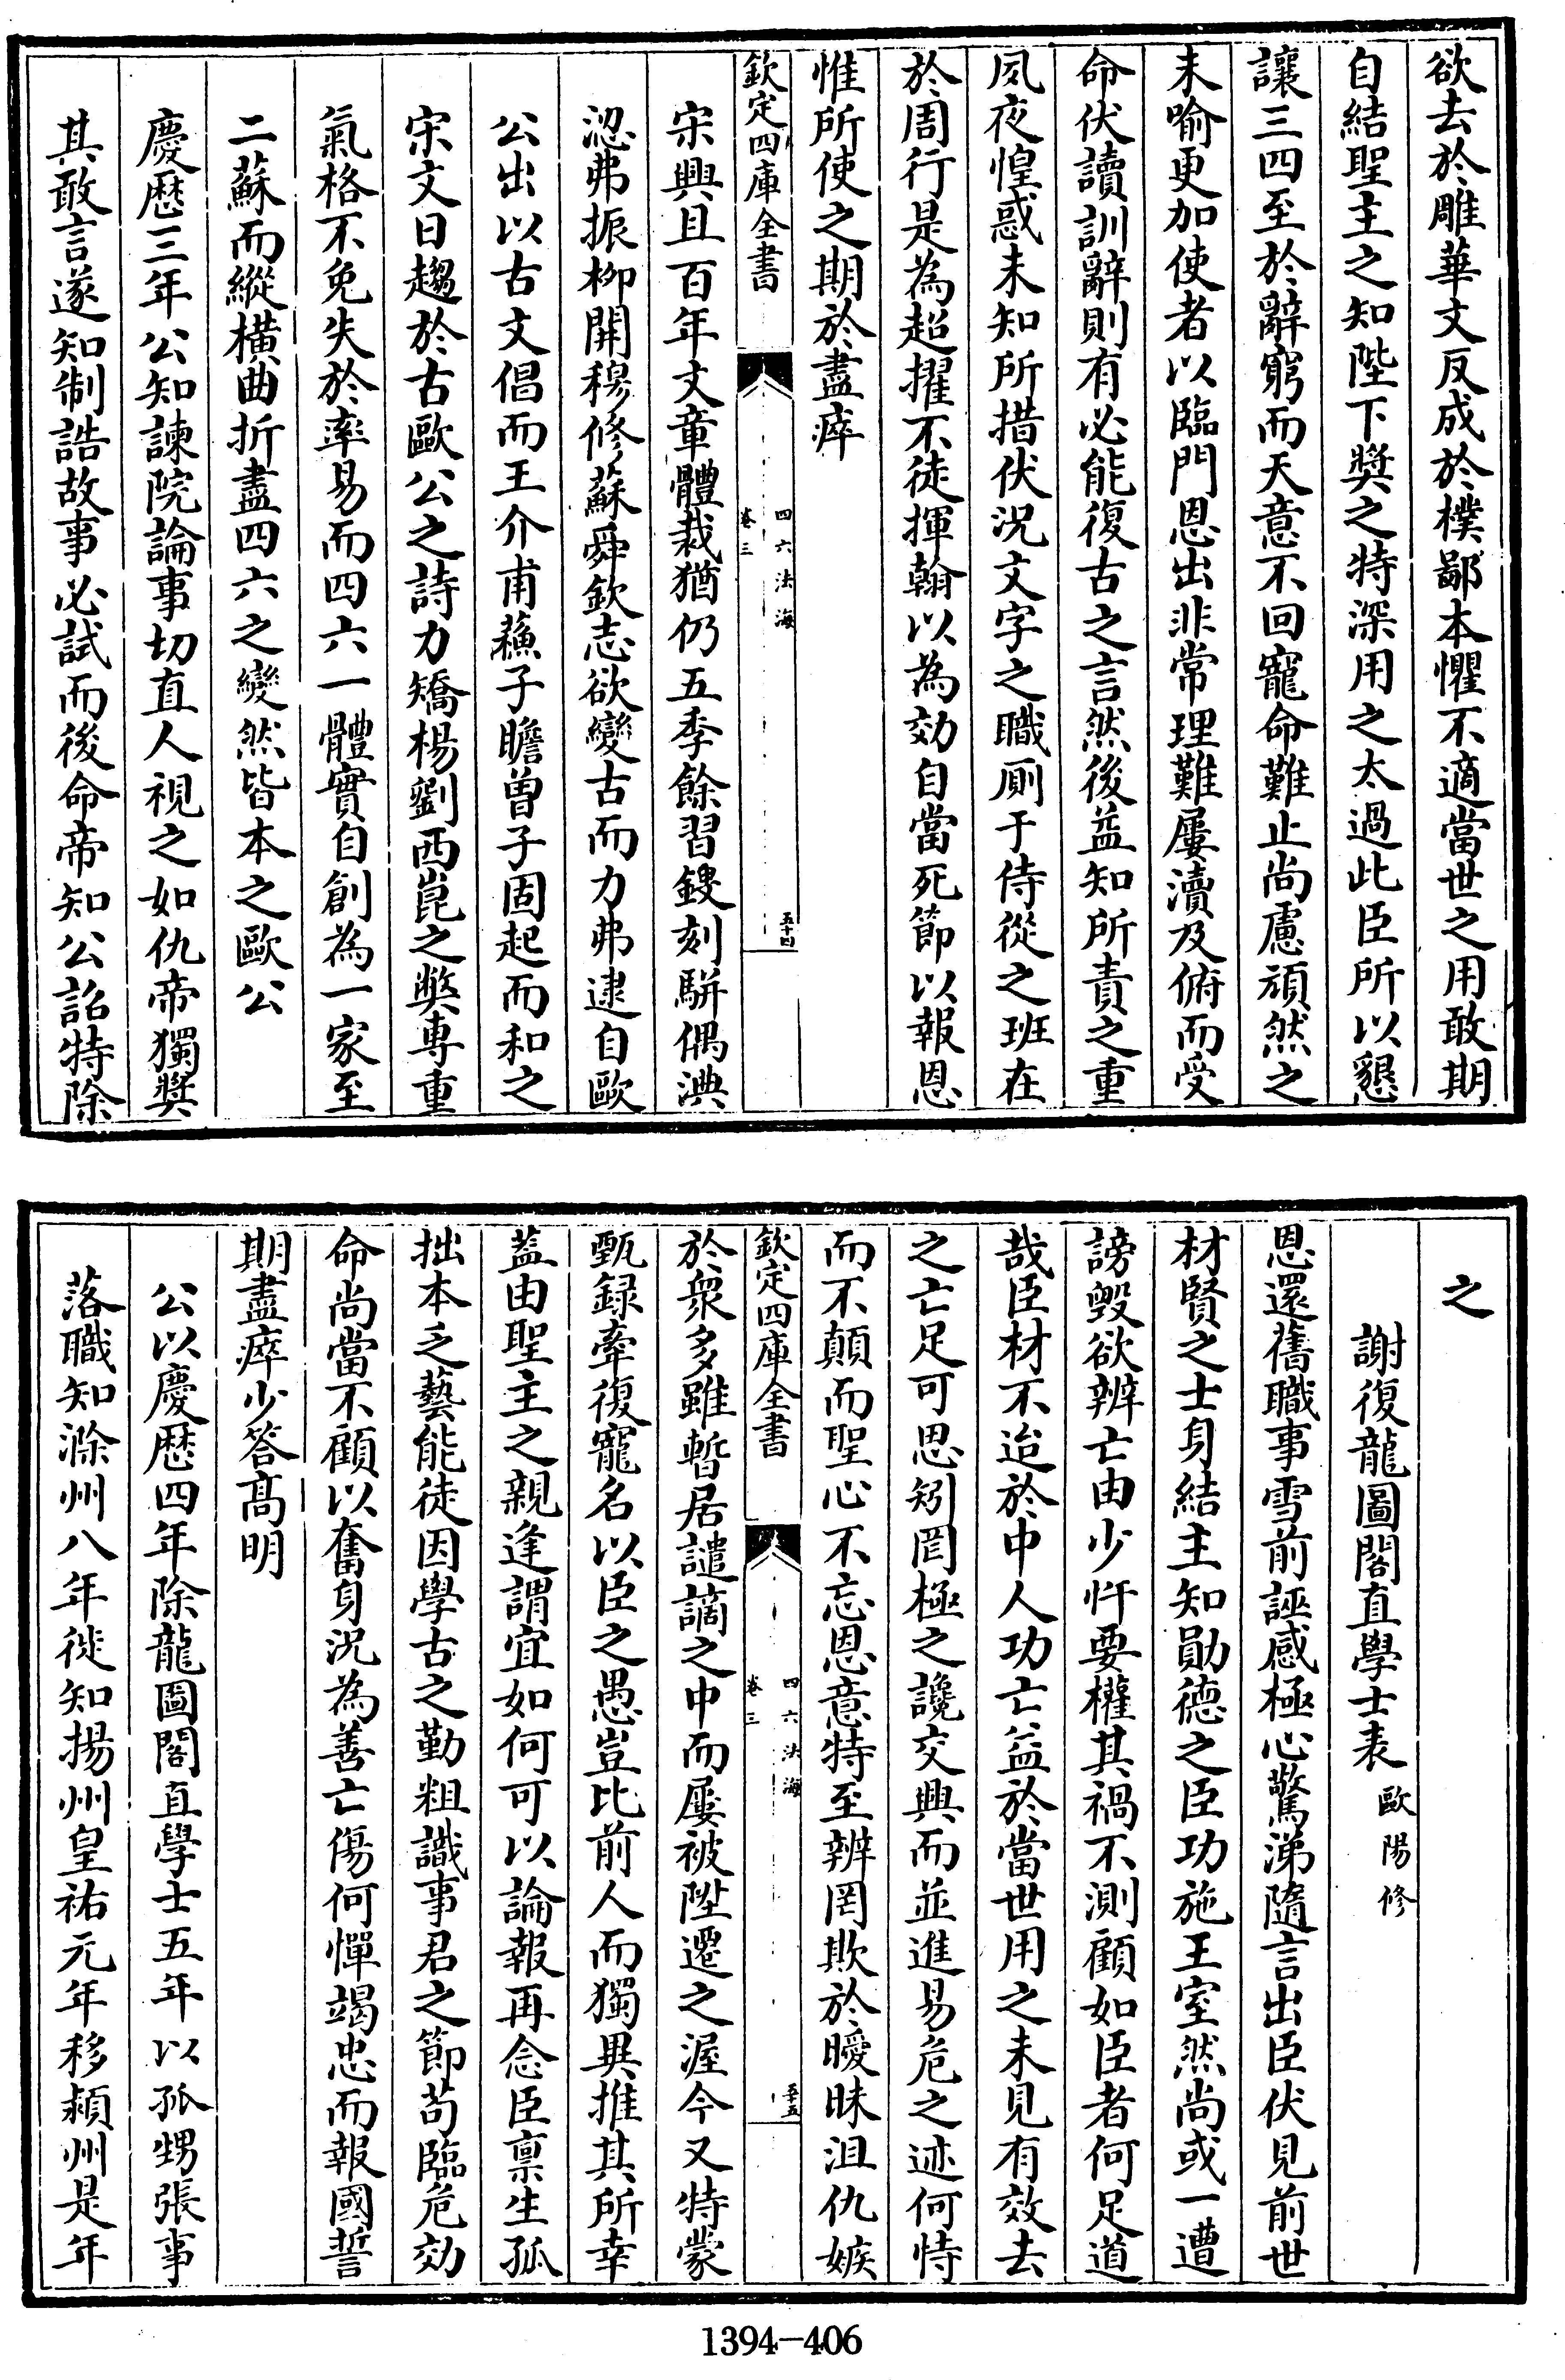 欲去於雕華文反成於樸鄙本懼不適當世之用敢期
自結聖主之知陛下奬之特深用之太過此臣所以懇
讓三四至於辭窮而天意不回寵命難止尚慮頑然之
未喻更加使者以臨門恩出非常理難屢瀆及俯而受
命伏讀訓辭則有必能復古之言然後益知所責之重
夙夜惶惑未知所措伏況文字之職厠于侍從之班在
於周行是為超擢不徒揮翰以為効自當死節以報恩
惟所使之期於盡瘁
欽定四庫全書
四六法海
卷三
五十四
宋興且百年文章體裁猶仍五季餘習鎪刻駢偶淟
涊弗振柳開穆修蘇舜欽志欲變古而力弗逮自歐
公出以古文倡而王介甫蘓子瞻曾子固起而和之
宋文日趨於古歐公之詩力矯楊劉西崑之弊專重
氣格不免失於率易而四六一體實自創為一家至
二蘇而縱橫曲折盡四六之變然皆本之歐公
慶厯三年公知諫院論事切直人視之如仇帝獨奬
其敢言遂知制誥故事必試而後命帝知公詔特除
之
謝復龍圖閣直學士表
歐陽修
恩還舊職事雪前誣感極心驚涕隨言出臣伏見前世
材賢之士身結主知勛德之臣功施王室然尚或一遭
謗毁欲辨亡由少忤要權其禍不測顧如臣者何足道
哉臣材不迨於中人功亡益於當世用之未見有效去
之亡足可思矧罔極之讒交興而並進易危之迹何恃
而不顛而聖心不忘恩意特至辨罔欺於曖昧沮仇嫉
欽定四庫全書
四六法海
卷三
五十五
於衆多雖暫居譴謫之中而屢被陞遷之渥今又特蒙
甄録牽復寵名以臣之愚豈比前人而獨異推其所幸
葢由聖主之親逢謂宜如何可以論報再念臣禀生孤
拙本乏藝能徒因學古之勤粗識事君之節苟臨危効
命尚當不顧以奮身況為善亡傷何憚竭忠而報國誓
期盡瘁少答髙明
公以慶厯四年除龍圖閣直學士五年以孤甥張事
落職知滁州八年徙知揚州皇祐元年移潁州是年
1394-406